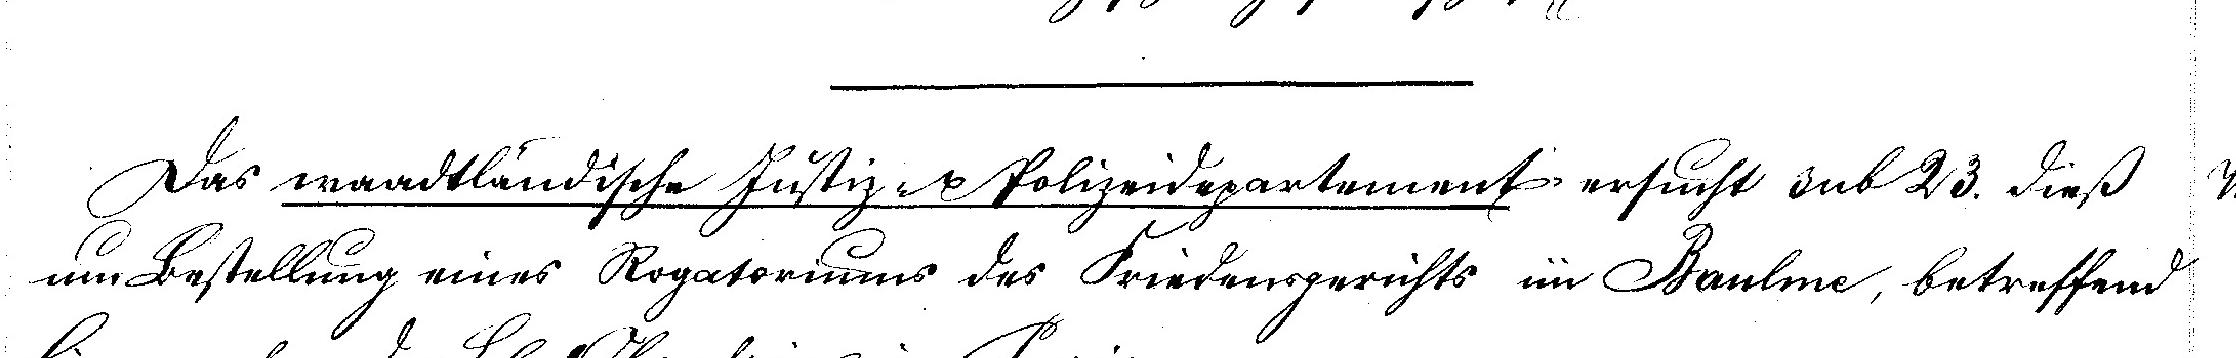 Das waadtländische Justiz- & Polizeidepartement ersucht sub 23. dieß
um Bestellung eines Rogatoriums des Friedensgerichts in Baulme, betreffend